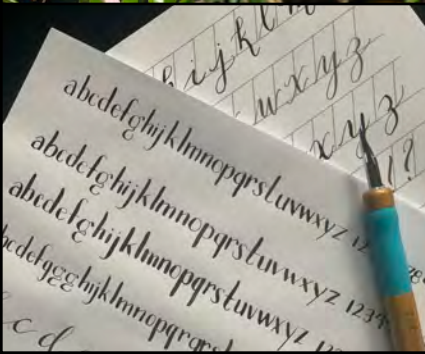 h i j k l m
w x y z
x y z
! ?
abcdefghijklmnopqrstuvwxyz 12
abcdefghijklmnopqrstuvwxyz 1234
abcdefghijklmnopqrstuvwxyz 12
bcdefggghijklmnopqrqrs
c d